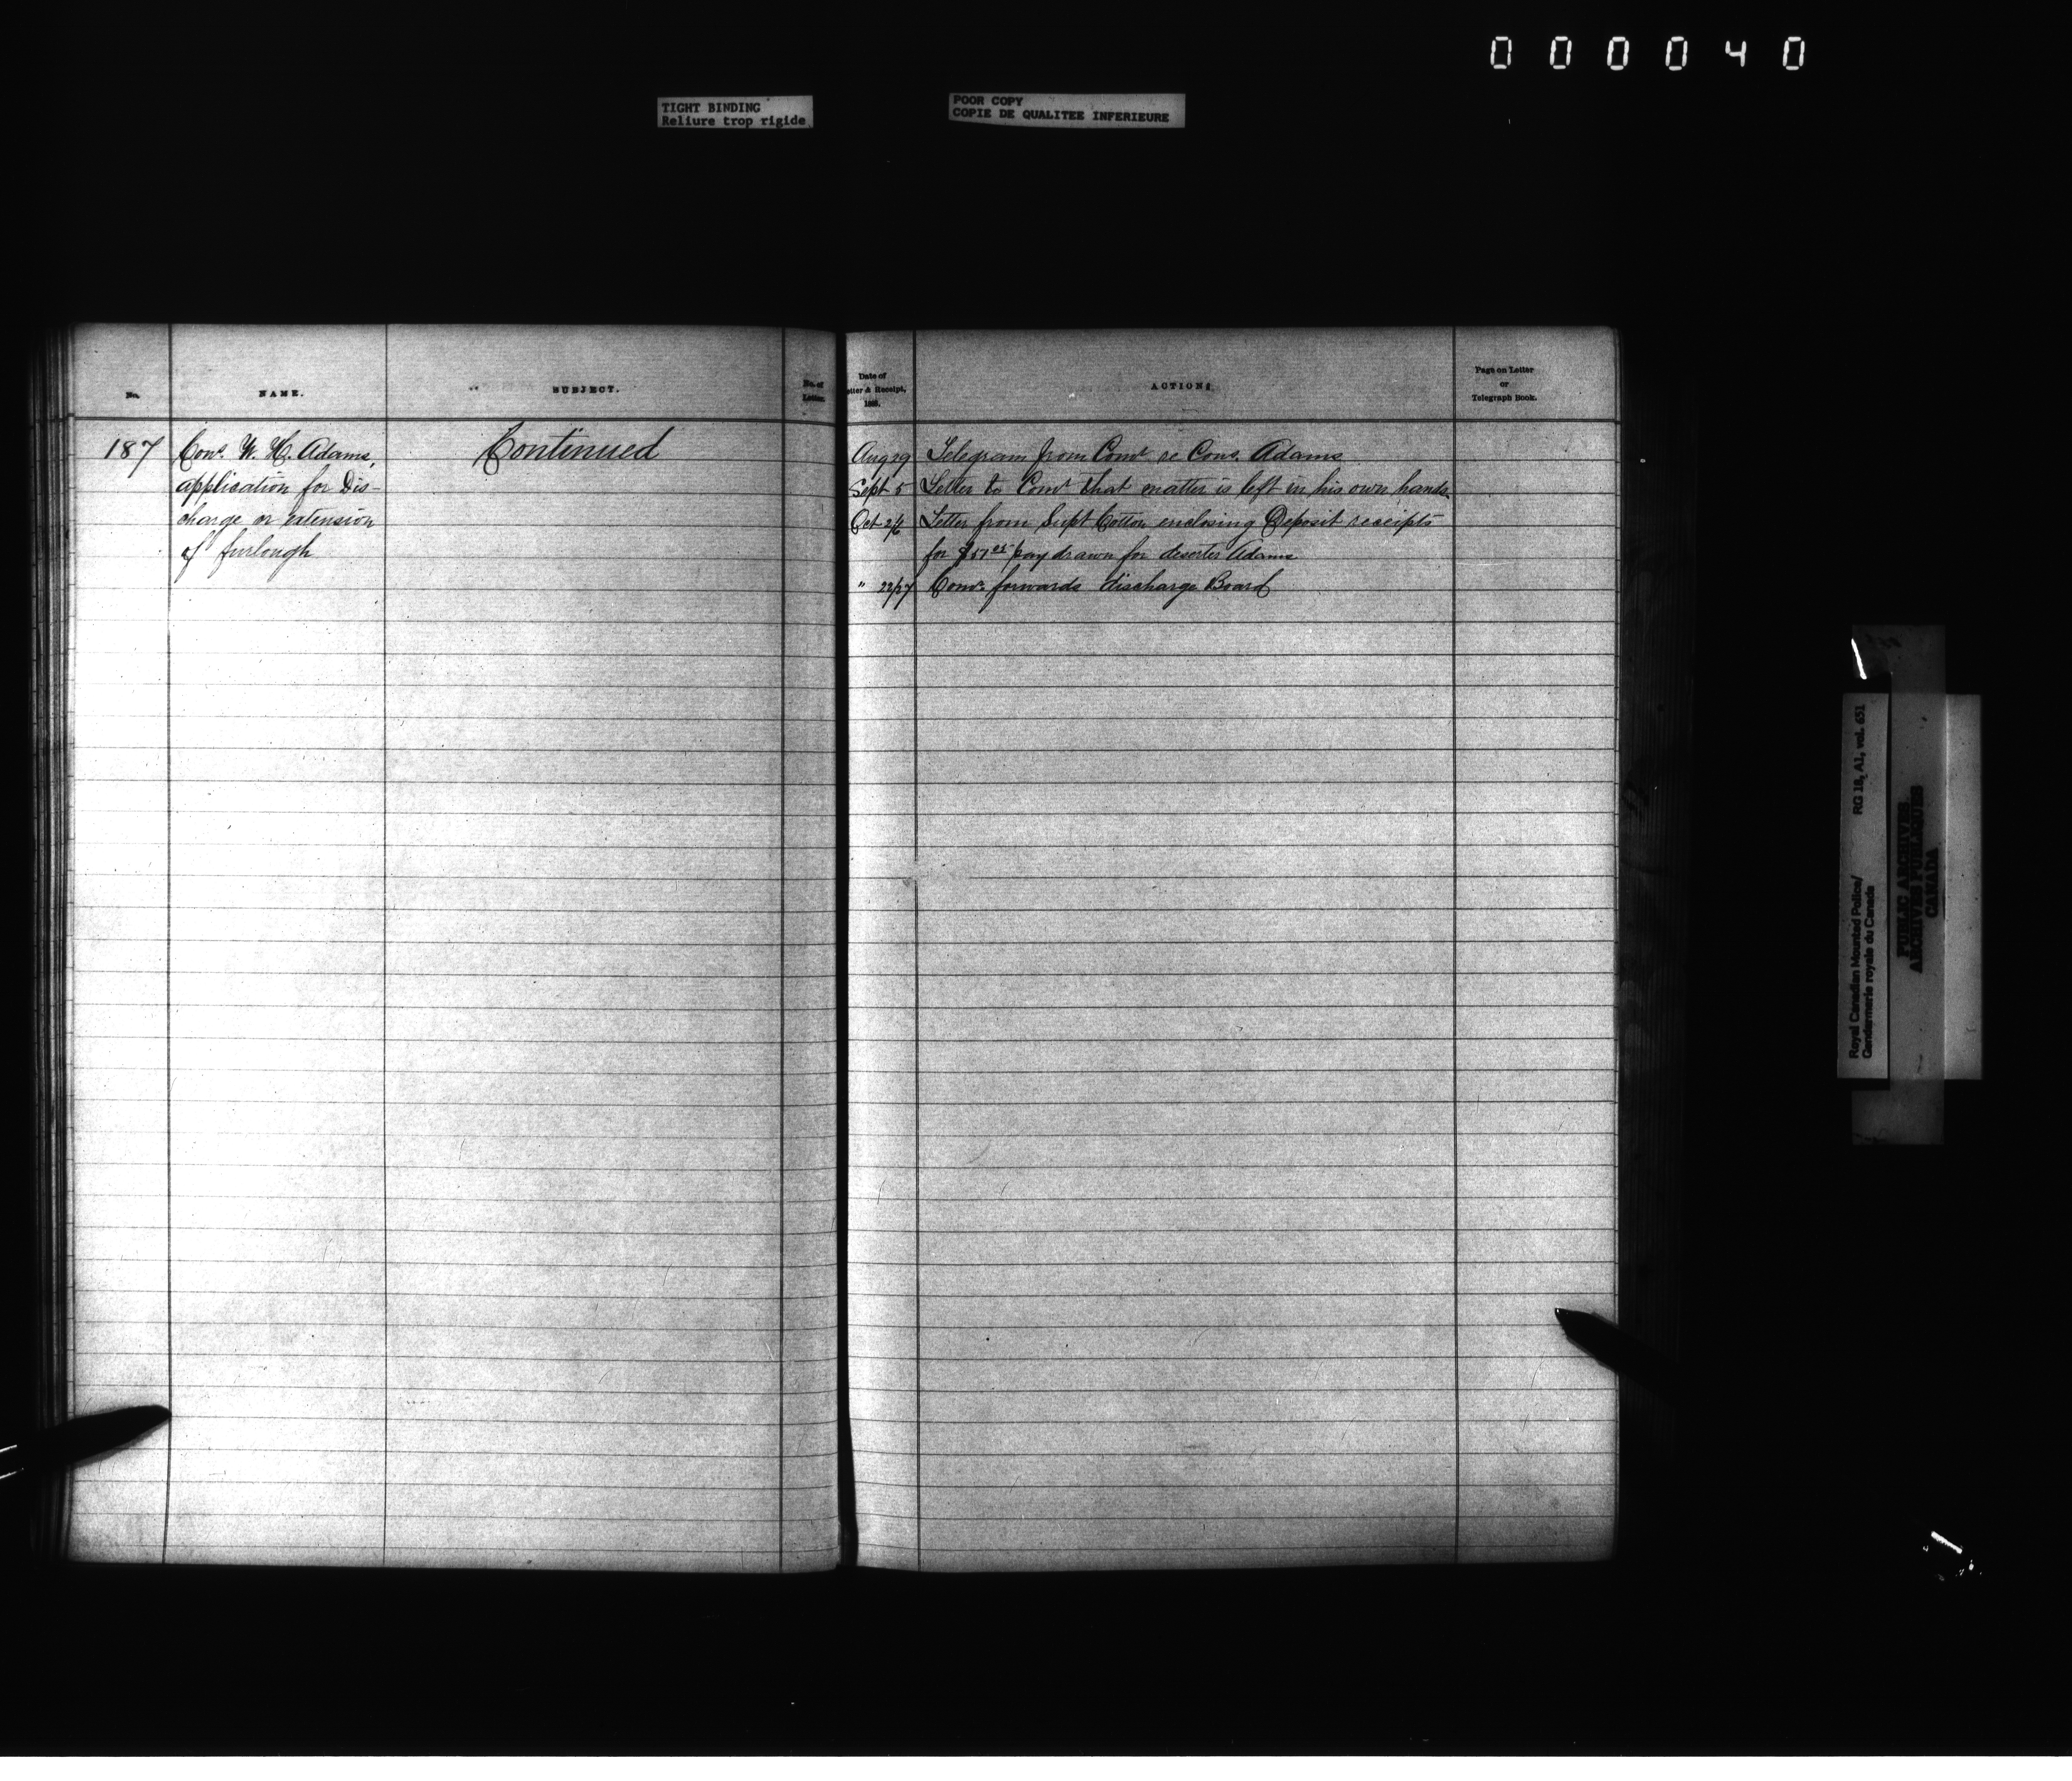 000040
TIGHT BINDING
Reliure trop rigide
POOR COPY
COPIE DE QUALITEE INFERIEURE
No.
NAME.
SUBJECT.
No. of
Letter.
Date of
etter & Receipt,
188.
ACTION.
Page on Letter
or
Telegraph Book.
187 Cons. W. H. Adams, Continued
application for Dis-
charge or extension
of furlough
Aug 29 Telegram from Comr re Cons. Adams
Sept 5 Letter to Comr that matter is left in his own hands.
Oct 2/6 Letter from Supt Cotton enclosing Deposit receipts
for pay drawn for deserter Adams
" 22/27 Comr. forwards discharge Board
Royal Canadian Mounted Police/ RG 18, A1, vol. 651
Gendarmerie royale du Canada
PUBLIC ARCHIVES
ARCHIVES PUBLIQUES
CANADA